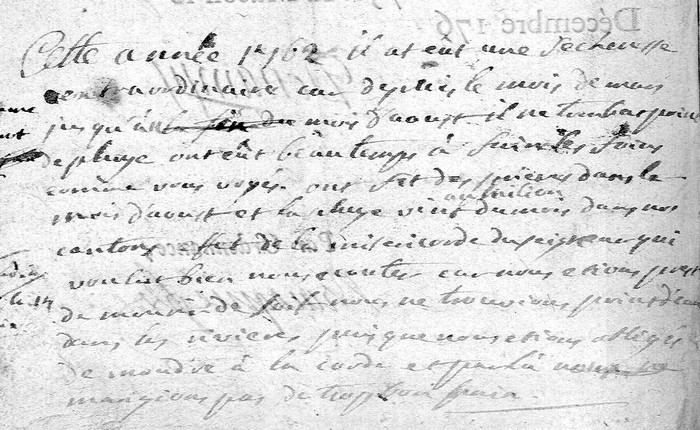 Décembre 176
Cette année 1762 il at eut une Secheresse
extraordinaire car depuis le mois de mars
jusqu'à la fin du mois d'aoust il ne tombas point
de pluye ont eut beau temps à faire les foins
comme vous voyés. ont fet des prieres dans le
au milieu
mois d'aoust et la pluye vint du mois dans nos
cantons fet de la misericorde du seigneur qui
voulut bien nous ecouter car nous etions prest
de mourir de soif nous ne trouvions point d'eau
dans les rivieres puisque nous etions obligé
de moudre à la corde et par là nous ne
mangions pas de trop bon pain.